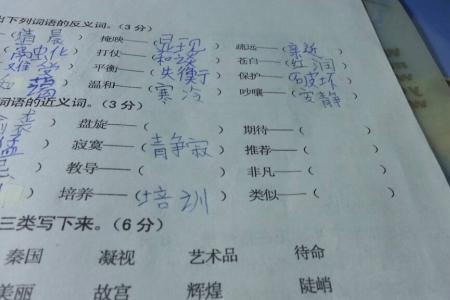 出下列词语的反义词。(3分)
清晨) 掩映——(显现) 疏远——(亲近
打仗——(和谈) 苍白——(红润
难受 平衡——(失衡) 保护——(破坏
温和——(寒冷) 吵嚷——(安静
词语的近义词。(3分)
盘旋——( ) 期待——(
寂寞——(清静寂 推荐——(
教导——( ) 非凡——(
培养——(培训) 类似——(
三类写下来。(6分)
秦国 凝视 艺术品 待命
美丽 故宫 辉煌 陡峭